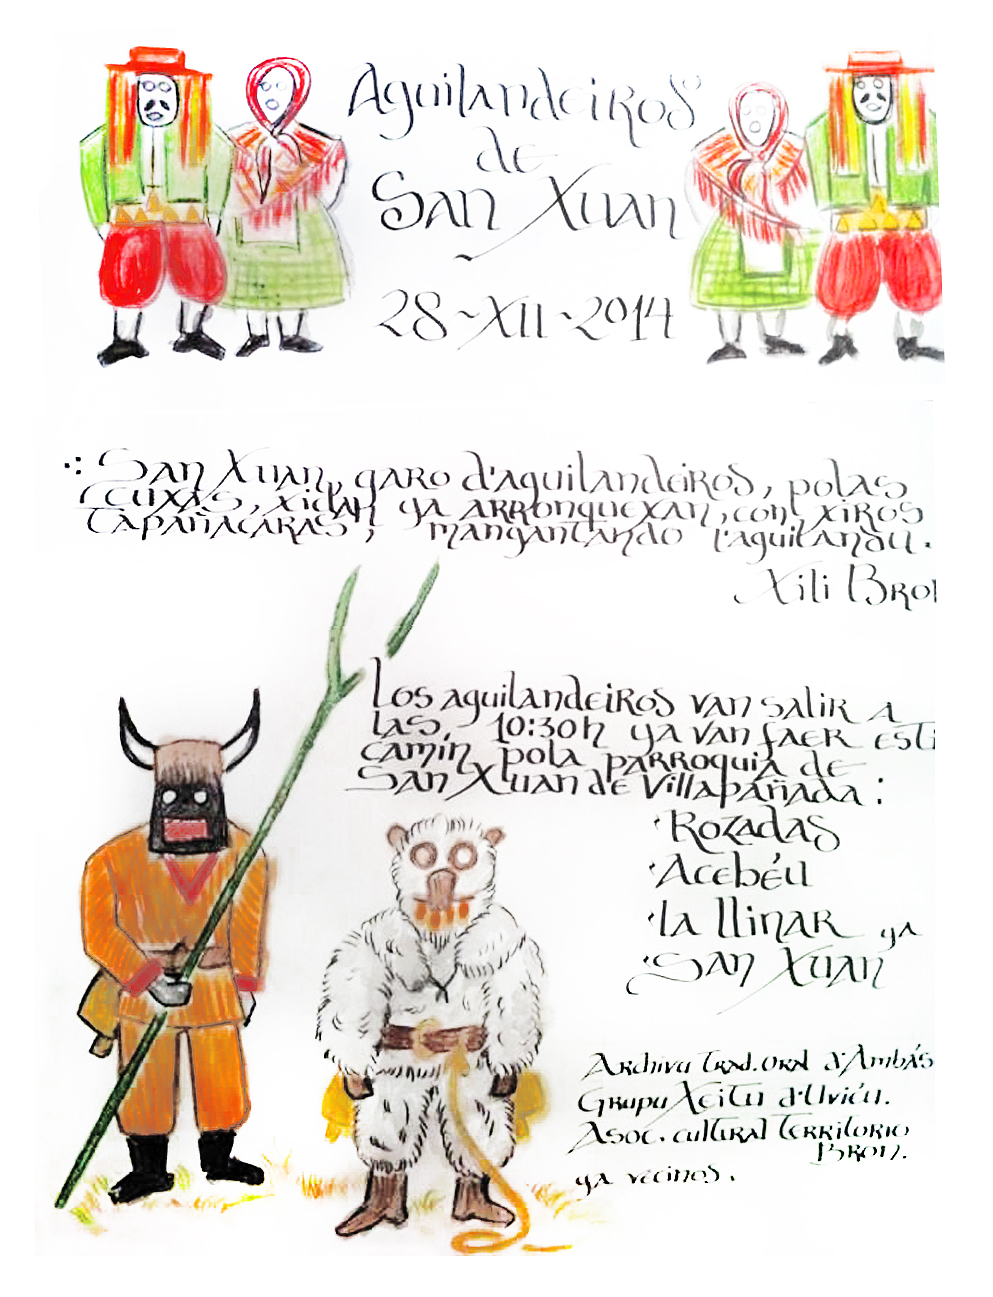 Aguilandeiros
de
San Xuan
28~XII~2014
San Xuan, garo d'aguilandeiros, polas
cuxas, xidan ya arronquexan, con xiros
tapañacaras, mangantando l'aguilandu.
Xili Bron
Los aguilandeiros van salir a
las 10:30h ya van faer esti
camín pola parroquia de
San Xuan de Villapañada:
·Rozadas
·Acebéu
·La Llinar ya
·San Xuan
Archivu trad. oral d'Ambás
Grupu Xeitu d'Uviéu.
Asoc. cultural territorio
Bron.
ya vecinos.